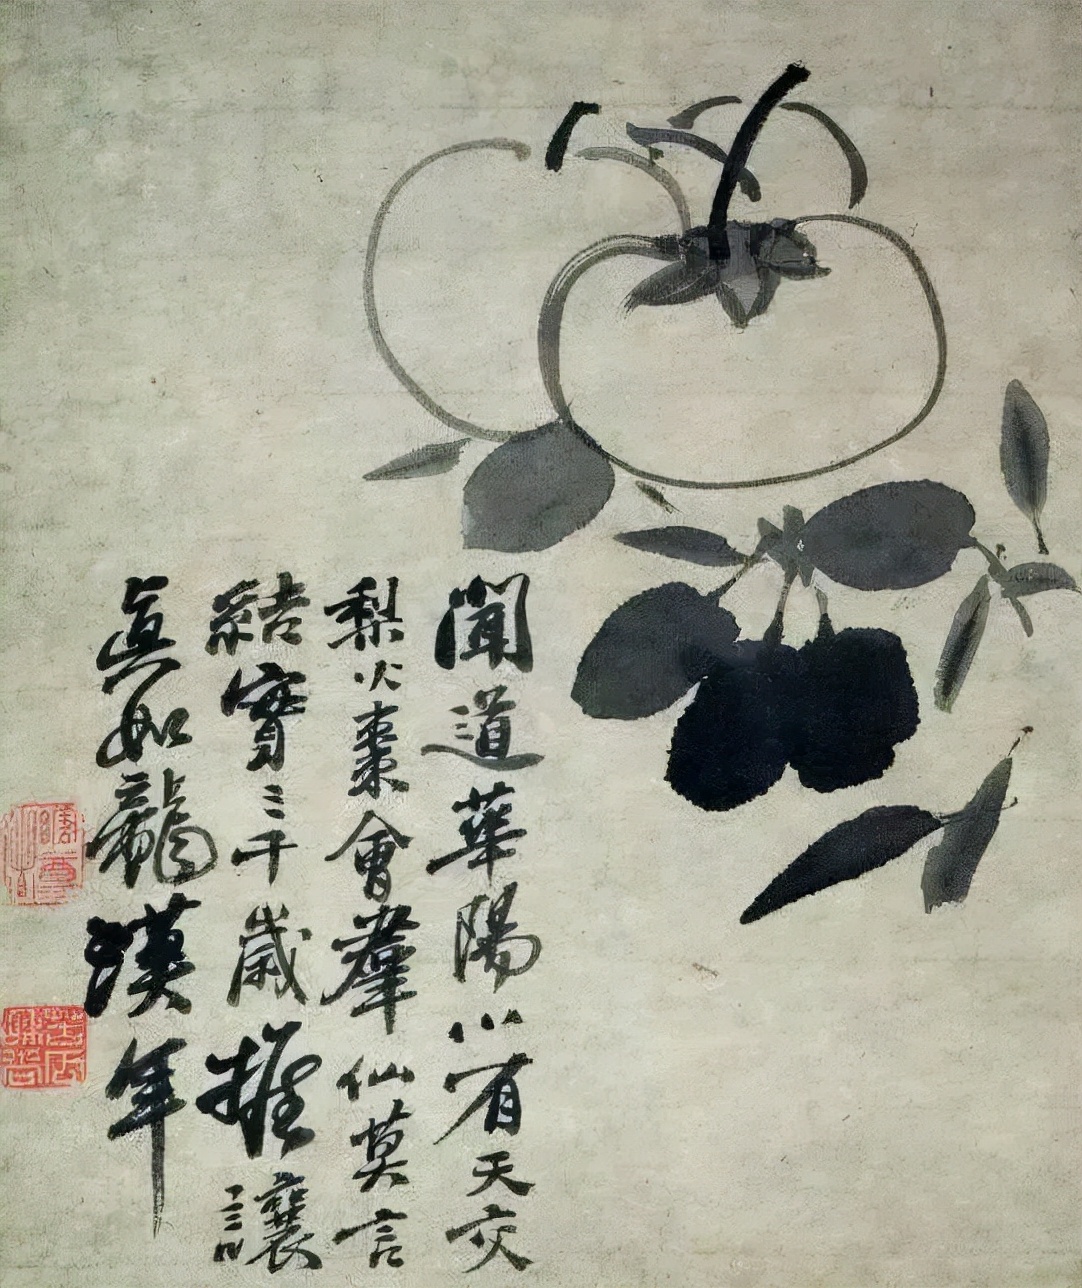 聞道華陽小有天交
梨火棗會羣仙莫言
結實三千歲讓
真如龍漢年